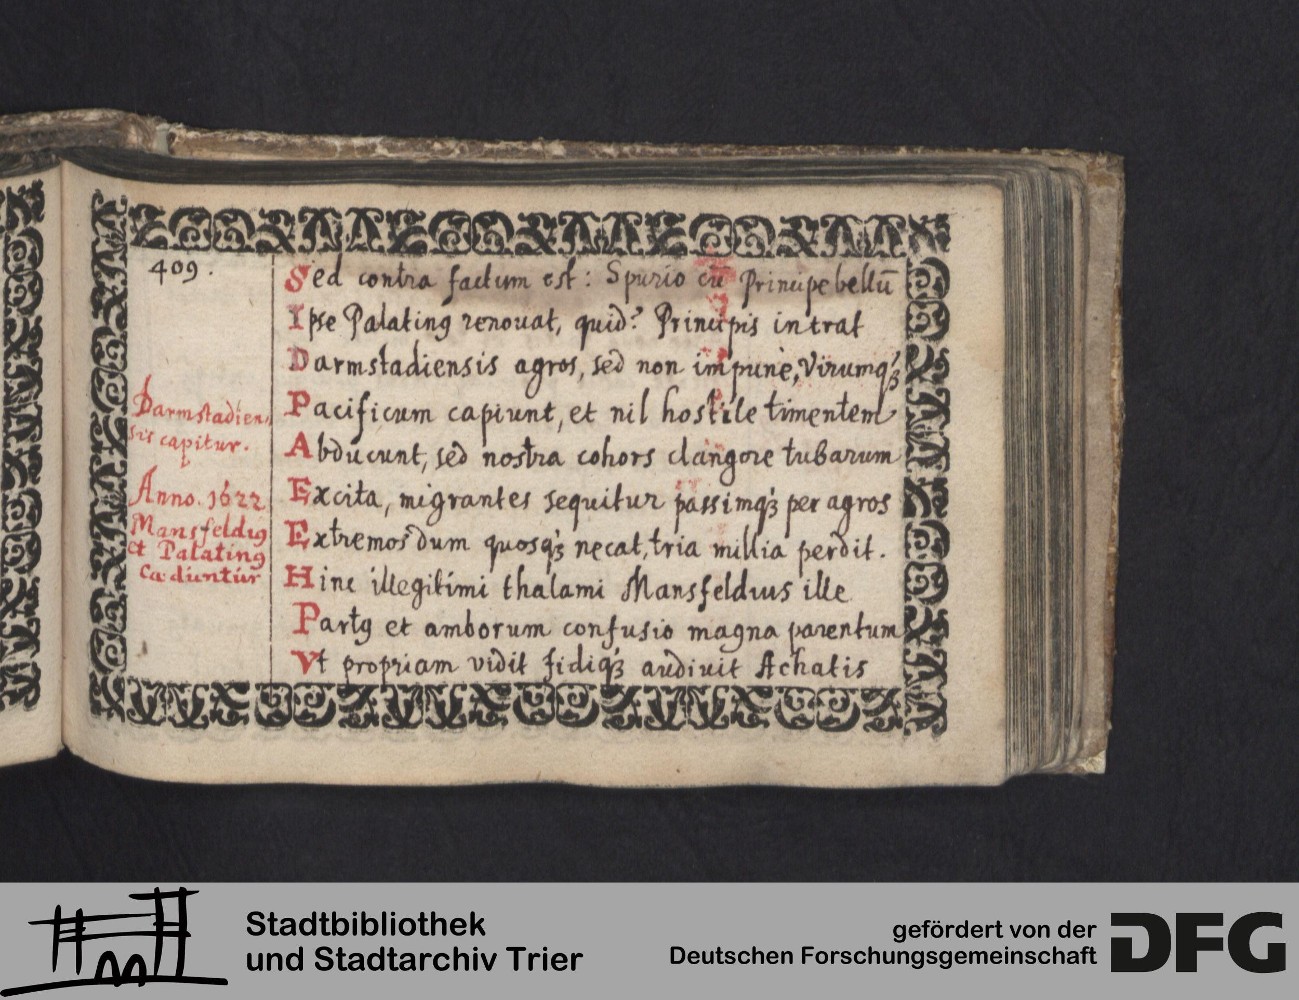 409.
Sed contra factum est: Spurio cū Principe bellū
Ipse Palatinꝯ renouat, quid? Principis intrat
Darmstadiensis agros, sed non impunè, Virumqꝫ
Pacificum capiunt, et nil hostile timentem
Abducunt, sed nostra cohors clangore tubarum
Excita, migrantes sequitur passimqꝫ per agros
Extremos dum quosqꝫ necat, tria millia perdit.
Hinc illegitimi thalami Mansfeldius ille
Partꝯ et amborum confusio magna parentum
Vt propriam vidit fidiqꝫ audiuit Achatis
Darmstadien
sis capitur.
Anno. 1622
Mansfeldiꝯ
et Palatinꝯ
Cæduntur
Stadtbibliothek
und Stadtarchiv Trier
gefördert von der
Deutschen Forschungsgemeinschaft
DFG